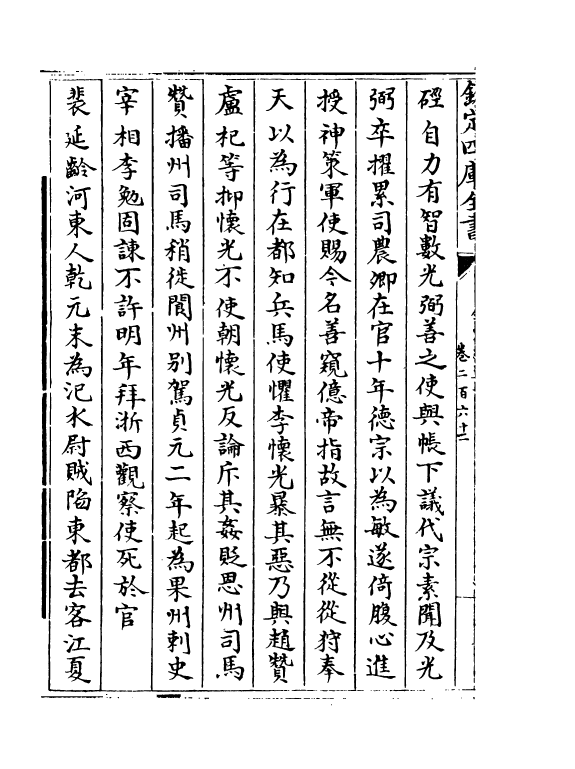 欽定四庫全書
卷二百六十二
硜自力有智數光弼善之使與帳下議代宗素聞及光
弼卒擢累司農卿在官十年德宗以為敏遂倚腹心進
授神策軍使賜今名善窺億帝指故言無不從從狩奉
天以為行在都知兵馬使懼李懷光暴其惡乃與趙贊
盧杞等抑懷光不使朝懷光反論斥其姦貶恩州司馬
贊播州司馬稍徙閬州别駕貞元二年起為果州刺史
宰相李勉固諫不許明年拜浙西觀察使死於官
裴延齡河東人乾元末為汜水尉賊陷東都去客江夏